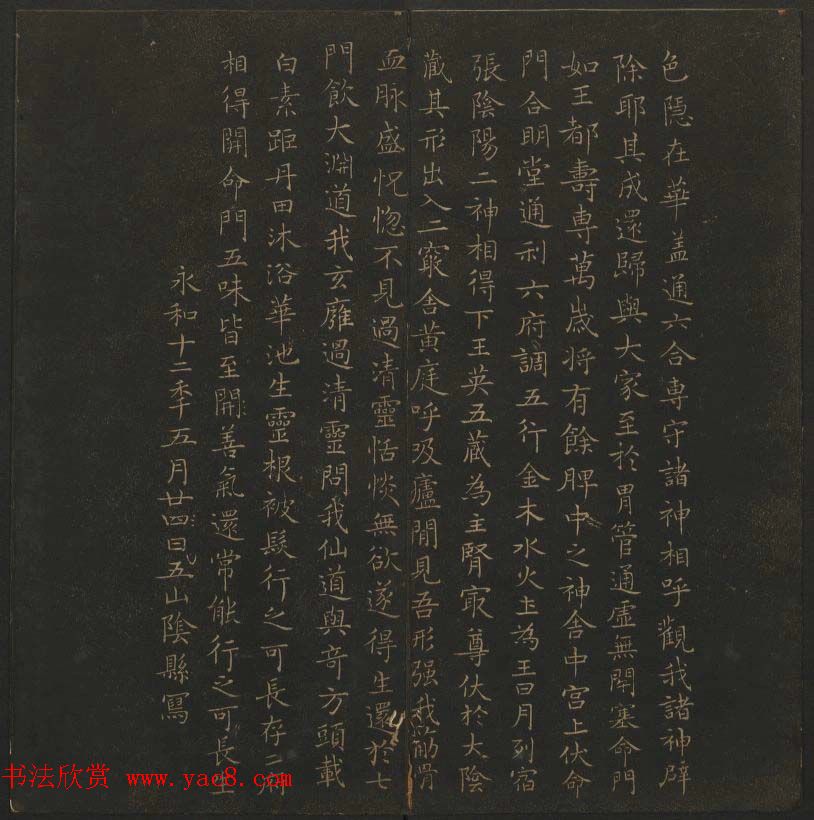 色隱在華盖通六合專守諸神相呼觀我諸神辟
除耶其成還歸與大家至於胃管通虛無閉塞命門
如王都壽専萬歲将有餘脾中之神舎中宫上伏命
門合明堂通利六府調五行金木水火土為王日月列宿
張陰陽二神相得下王英五藏為主腎寂尊伏於大陰
藏其形出入二竅舎黄庭呼吸廬間見吾形强我筋骨
血脉盛怳惚不見過清靈恬惔無欲遂得生還於七
門飲大淵道我玄廱過清靈問我仙道與奇方頭載
白素距丹田沐浴華池生靈根被髮行之可長存二府
相得開命門五味皆至開善氣還常能行之可長生
永和十二年五月廿四日五山陰縣寫
书法欣赏 www.yac8.com